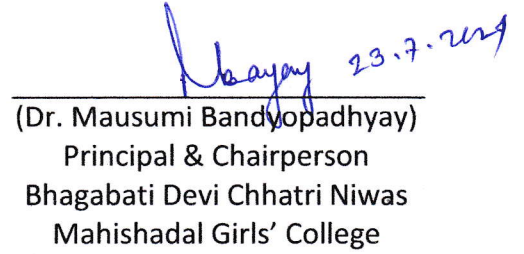 23.7.2024
(Dr. Mausumi Bandyopadhyay)
Principal & Chairperson
Bhagabati Devi Chhatri Niwas
Mahishadal Girls' College